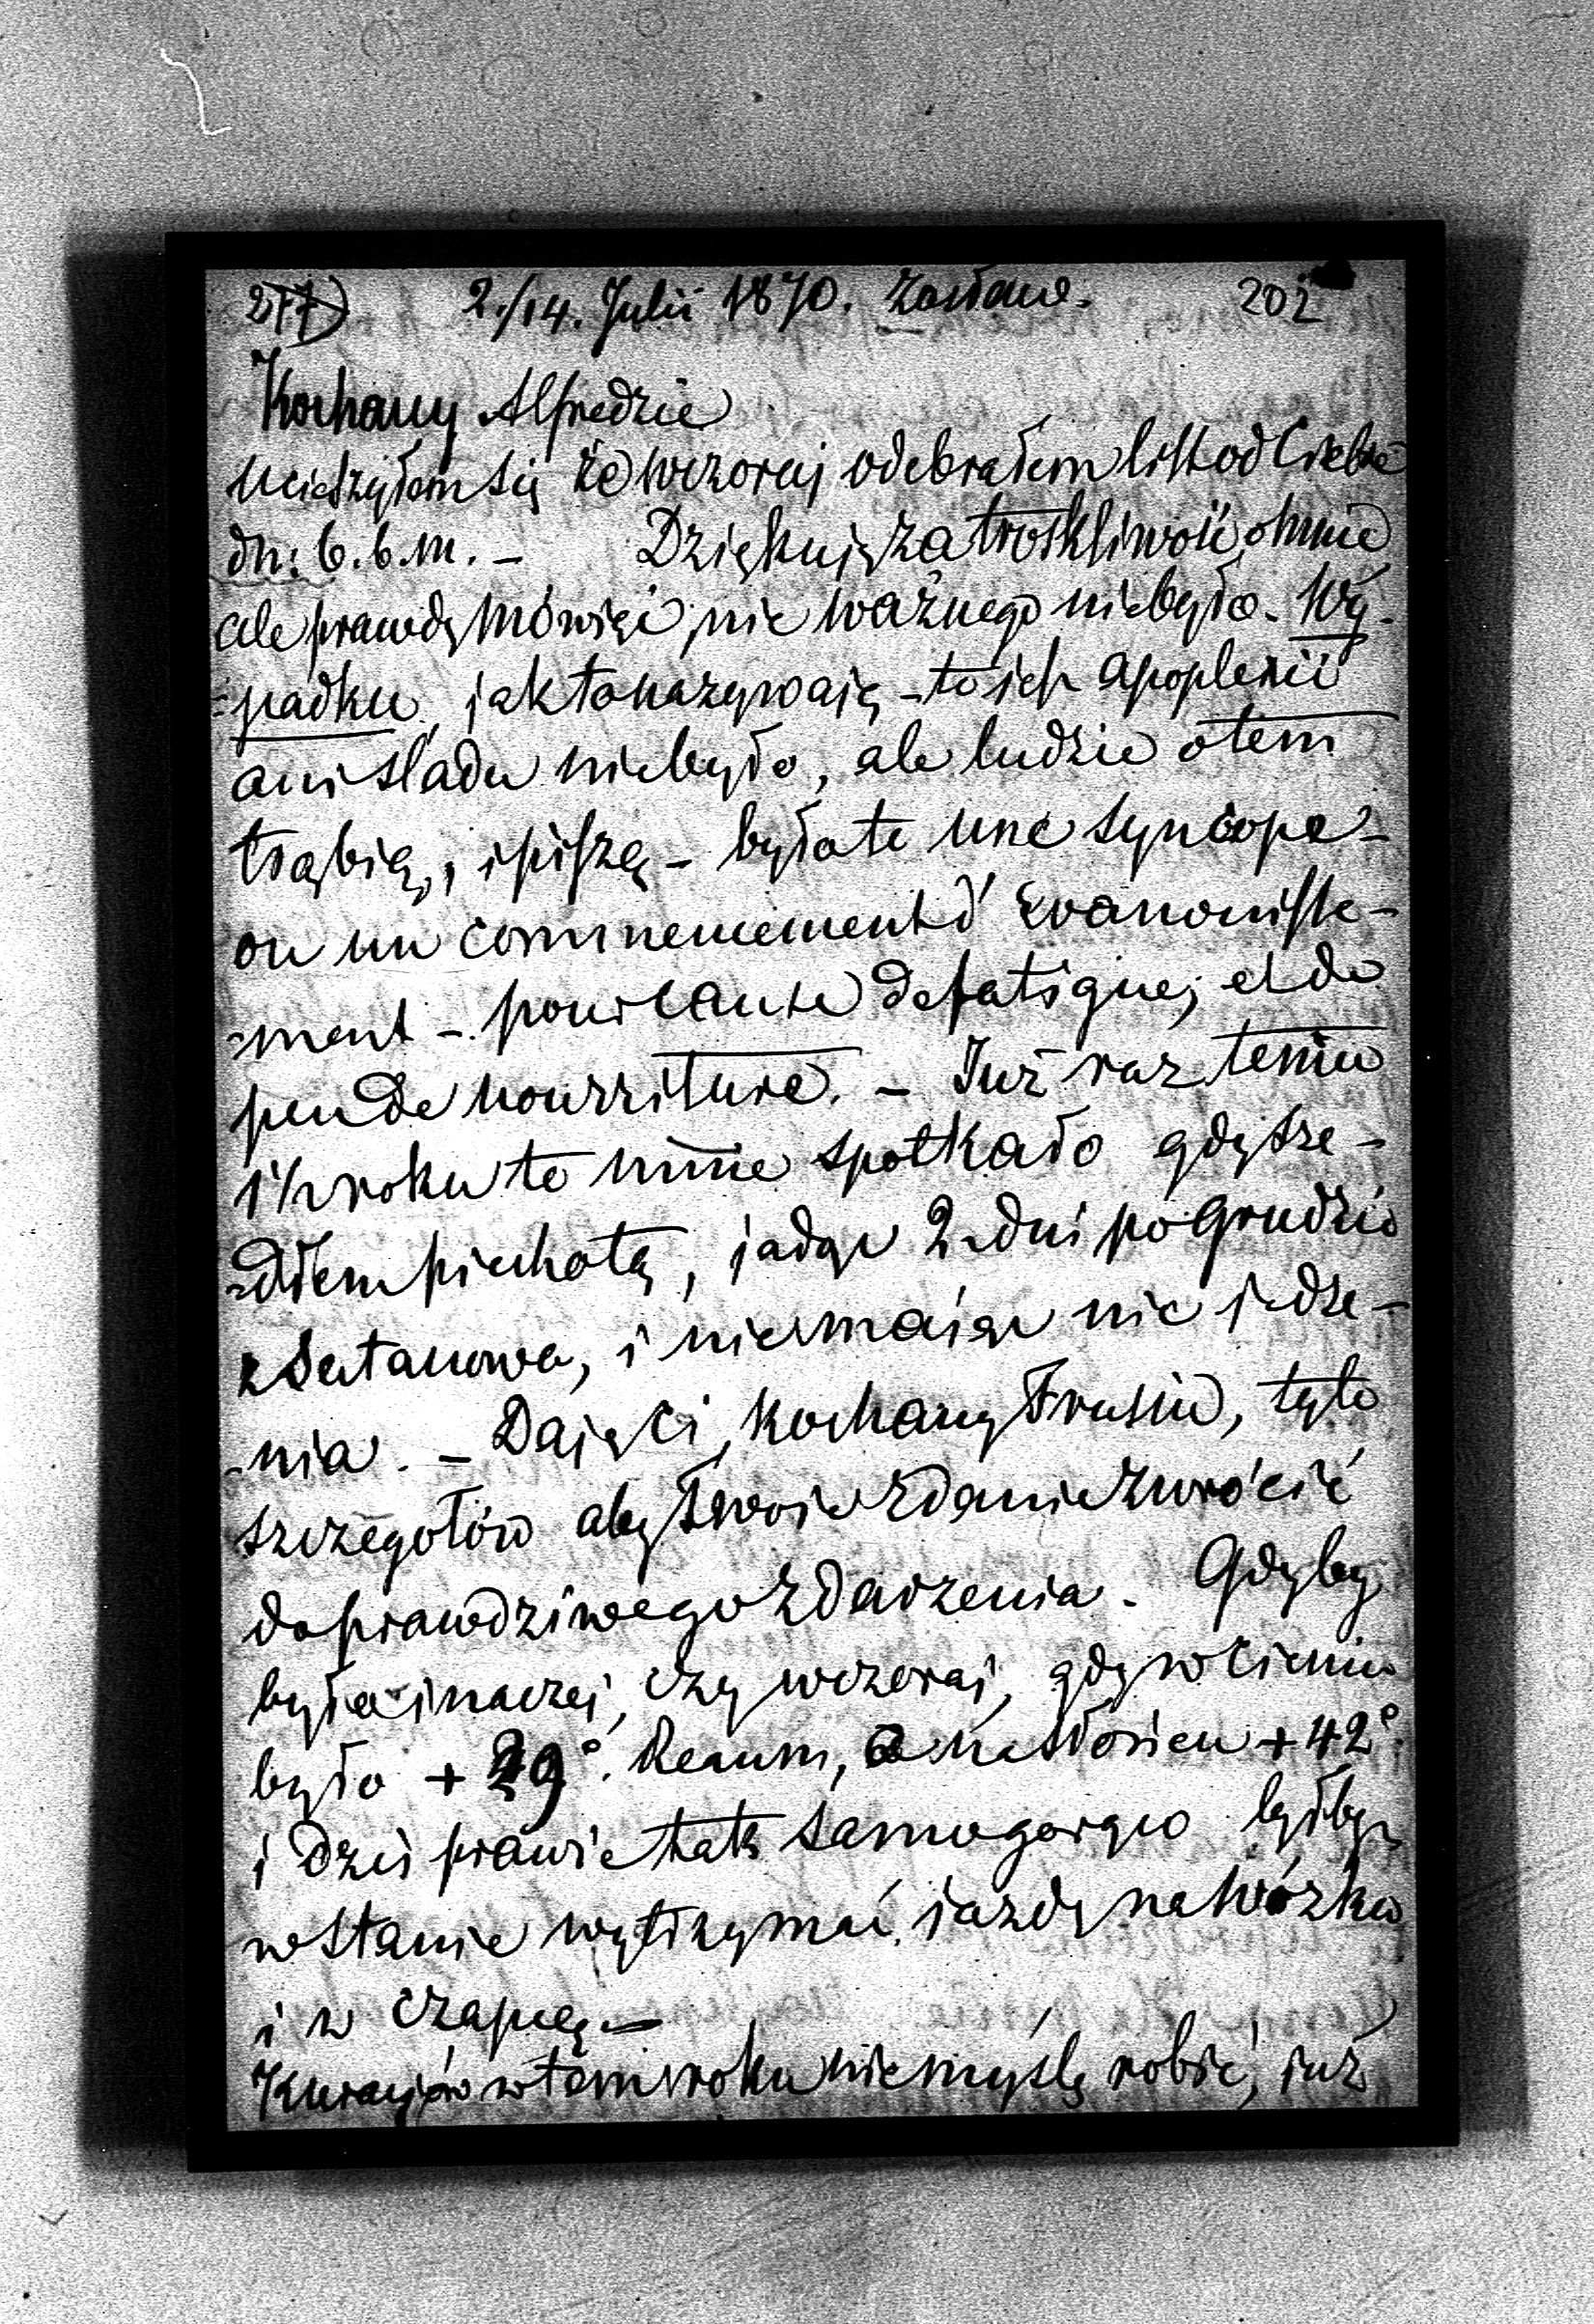 277) 2./14. Julii 1870. Zasław. 202
Kochany Alfredzie
ucieszyłem się że wczoraj odebrałem list od Ciebie
dn: 6. b. m. – Dziękuję za troskliwość o mnie
ale prawdę mówiąc, nic ważnego niebyło. Wy-
padku, jak to nazywają – to jest apoplexii
ani śladu niebyło, ale ludzie o tem
trąbią, i piszą – była to une syncope –
ou un commencement d'évanouisse-
ment – pour cause de fatigue, et de
peu de nourriture. – Już raz temu
1½ roku to mnie spotkało gdy sze-
dłem piechotą, jadąc 2 dni po grudzie
z Satanowa, i niemając nic jedze-
nia. – Daję Ci, kochany Frusiu, tyle
szczegółów aby Twoie zdanie zwrócić
do prawdziwego zdarzenia. Gdyby
było inaczej, czy wczoraj, gdy w cieniu
było + 29°. Reaum, a na słońcu + 42°.
i dziś prawie tak samo gorąco byłbym
w stanie wytrzymać jazdę na wózku
i w czapce –
Kuracjów w tem roku niemyślę robić, już